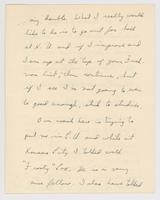 my trouble. What I really would
like to do is to go out for ball
at K.U. and if I improve and
I am up at the top of your Fresh.
next hunt, then continue, but
if I see I am not going to even
be good enough, stick to studies.
Our coach here is trying to
put me in L.U. and while at
Kansas City I talked with
"Frosty" Cox. He is a very
nice fellow. I also have talked